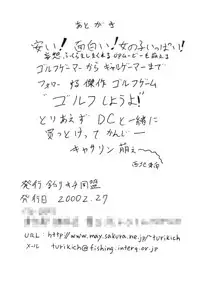 あとがき
安い！面白い！女の子いっぱい！
ゴルフゲーマーからギャルゲーマーまで
フォローする傑作ゴルフゲーム
"ゴルフしようよ"
とりあえずDCと一緒に
買っとけってかんじー
キャサリン萌え〜
発行 釣りキチ同盟
発行日 2000.2.27
URL : http://www.may.sakura.ne.jp/~turikich
メール turikich@fishing.interq.or.jp